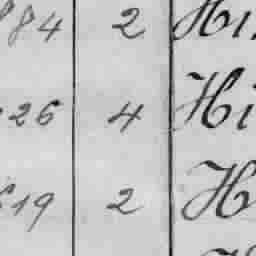 84 2 Hi
26 4 Hi
19 2 H